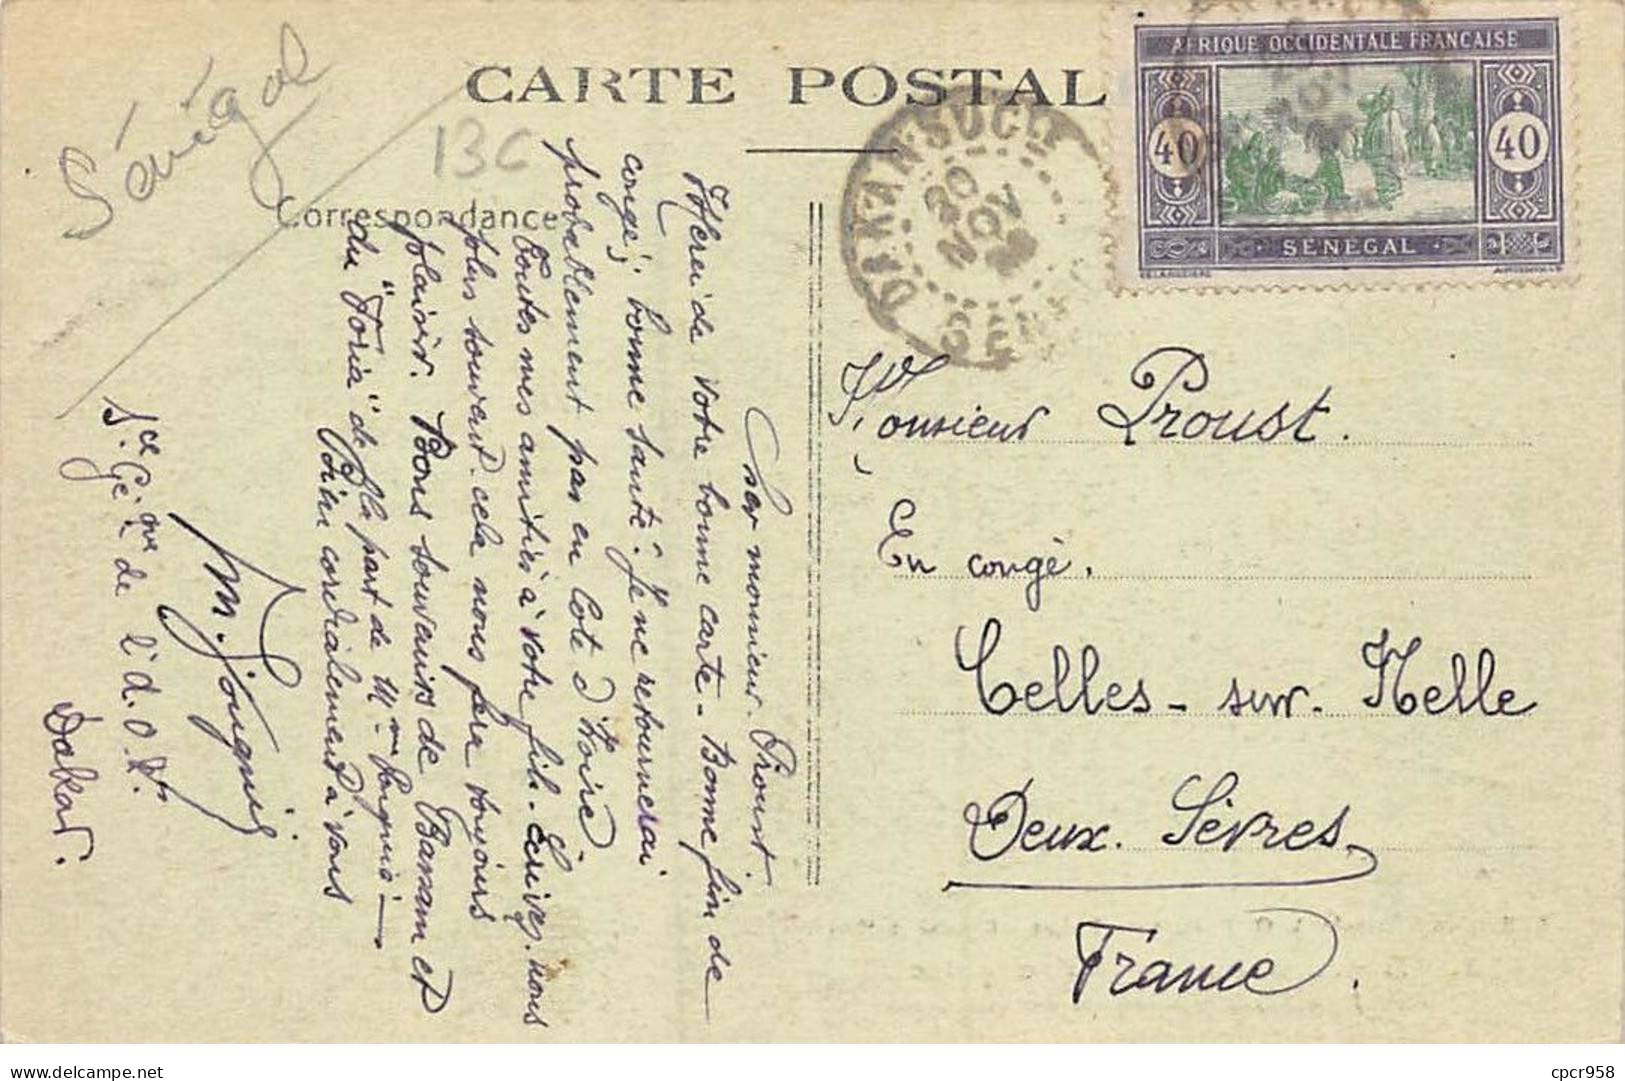 Sénégal
13C
CARTE POSTAL
Correspondance
AFRIQUE OCCIDENTALE FRANÇAISE
40
40
SÉNÉGAL
20 NOV
Cher monsieur Proust.
Merci de votre bonne carte - Bonne fin de
congé; bonne santé. Je ne retournerai
probablement pas en Côte d'Ivoire
toutes mes amitiés à votre fils. Ecrivez-nous
plus souvent cela nous fera toujours
plaisir. Bons souvenirs de Bassam et
du "Foria" de la part de Mme
Bien cordialement à vous
Sce Géque de l'A.O.F.
Dakar.
Monsieur Proust.
En congé.
Celles-sur-Melle
Deux-Sèvres
France.
cpcr958